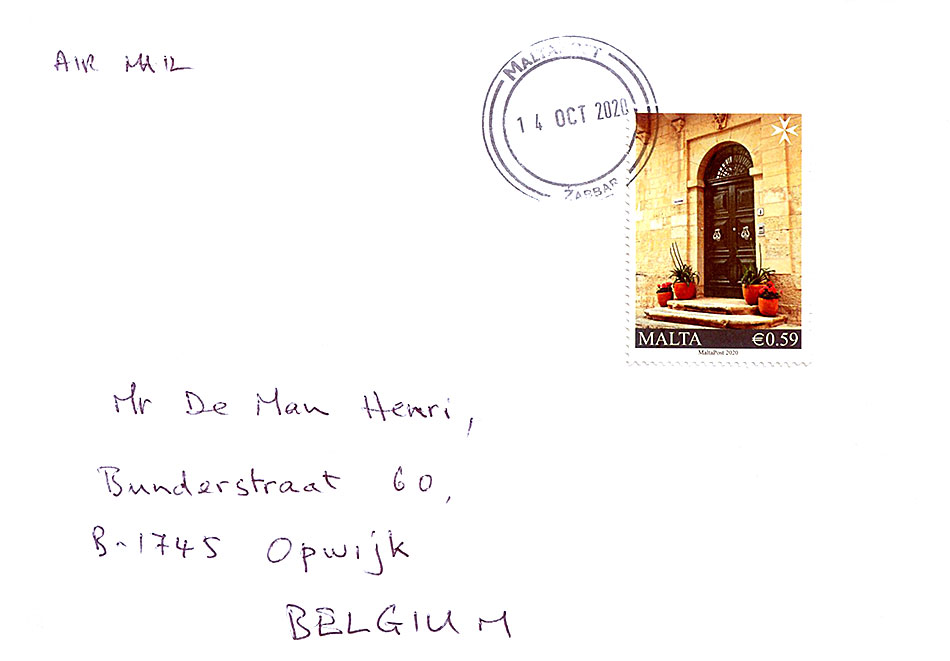 AIR MAIL
MALTAPOST
14 OCT 2020
ŻABBAR
MALTA €0.59
MaltaPost 2020
Mr De Man Henri,
Bunderstraat 60,
B-1745 Opwijk
BELGIUM